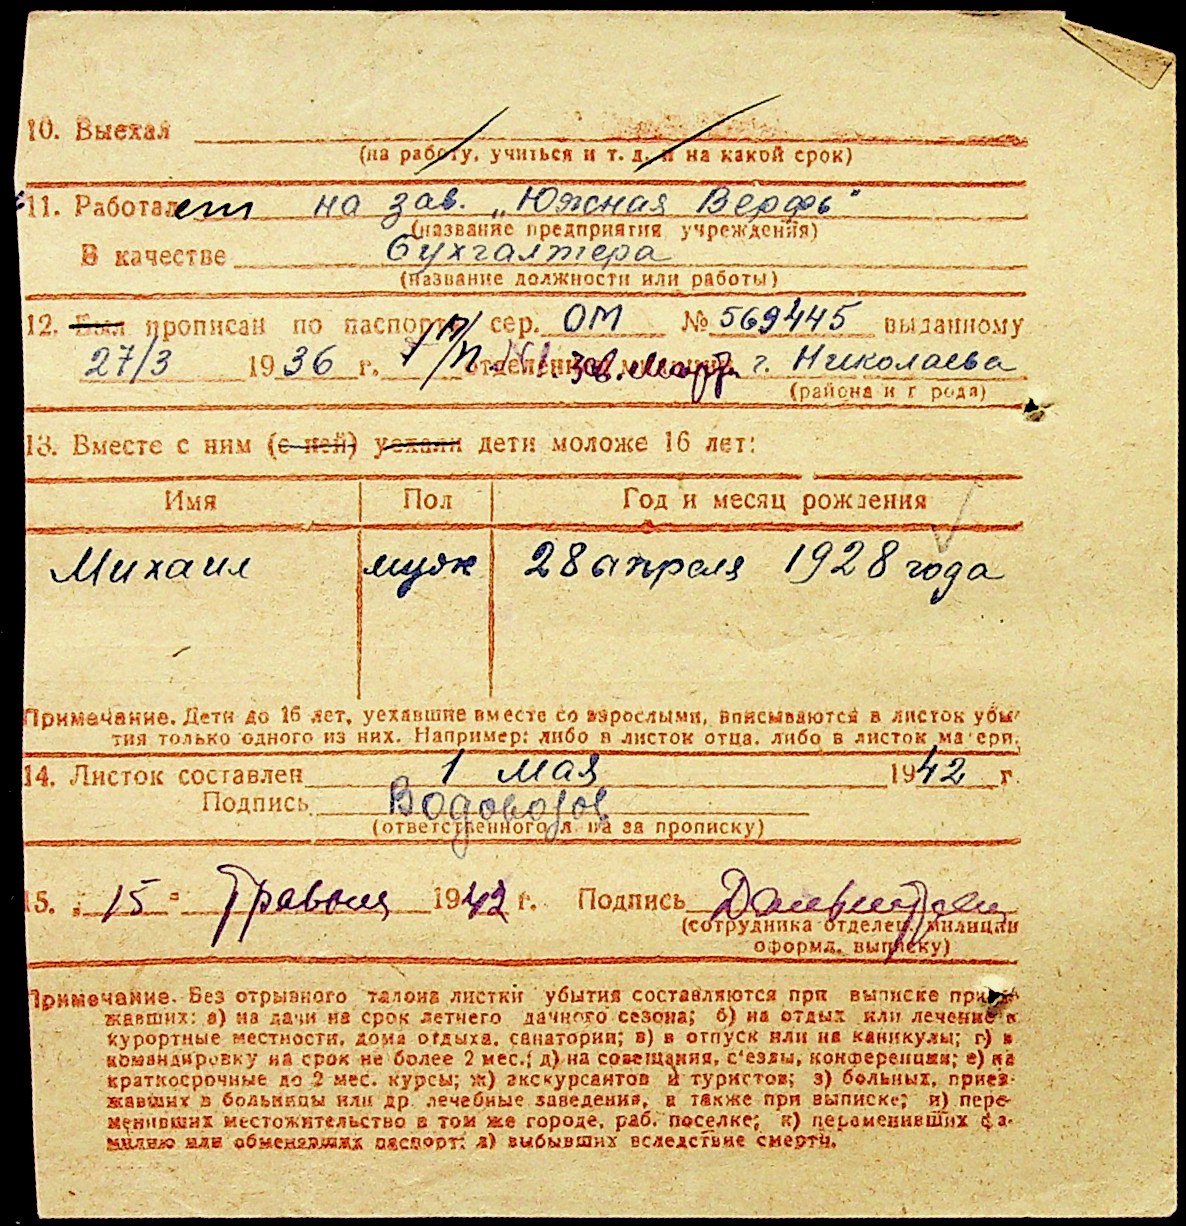 10. Выехал
(на работу, учиться и т. д. и на какой срок)
11. Работает на зав. „Южная Верфь"
(название предприятия учреждения)
В качестве бухгалтера
(название должности или работы)
12. Был прописан по паспорту сер. ОМ № 569445 выданному
27/3 1936 г. отделением милиции г. Николаева
(района и г рода)
13. Вместе с ним (с ней) уехали дети моложе 16 лет:
Имя Пол Год и месяц рождения
Михаил муж 28 апреля 1928 года
Примечание. Дети до 16 лет, уехавшие вместе со взрослыми, вписываются в листок убы-
тия только одного из них. Например: либо в листок отца, либо в листок матери.
14. Листок составлен 1 мая 1942 г.
Подпись Водовозов
(ответственного л на за прописку)
15. „15" Травня 1942 г. Подпись
(сотрудника отделен. милиции
оформл. выписку)
Примечание. Без отрывного талона листки убытия составляются при выписке прие-
жавших: а) на дачи на срок летнего дачного сезона; б) на отдых или лечение в
курортные местности, дома отдыха, санатории; в) в отпуск или на каникулы; г) в
командировку на срок не более 2 мес.; д) на совещания, с'езды, конференции; е) на
краткосрочные до 2 мес. курсы; ж) экскурсантов и туристов; з) больных, приез-
жавших в больницы или др лечебные заведения, а также при выписке; и) пере-
менивших местожительство в том же городе, раб. поселке; к) переменивших фа-
милию или обменявших паспорт; л) выбывших вследствие смерти.